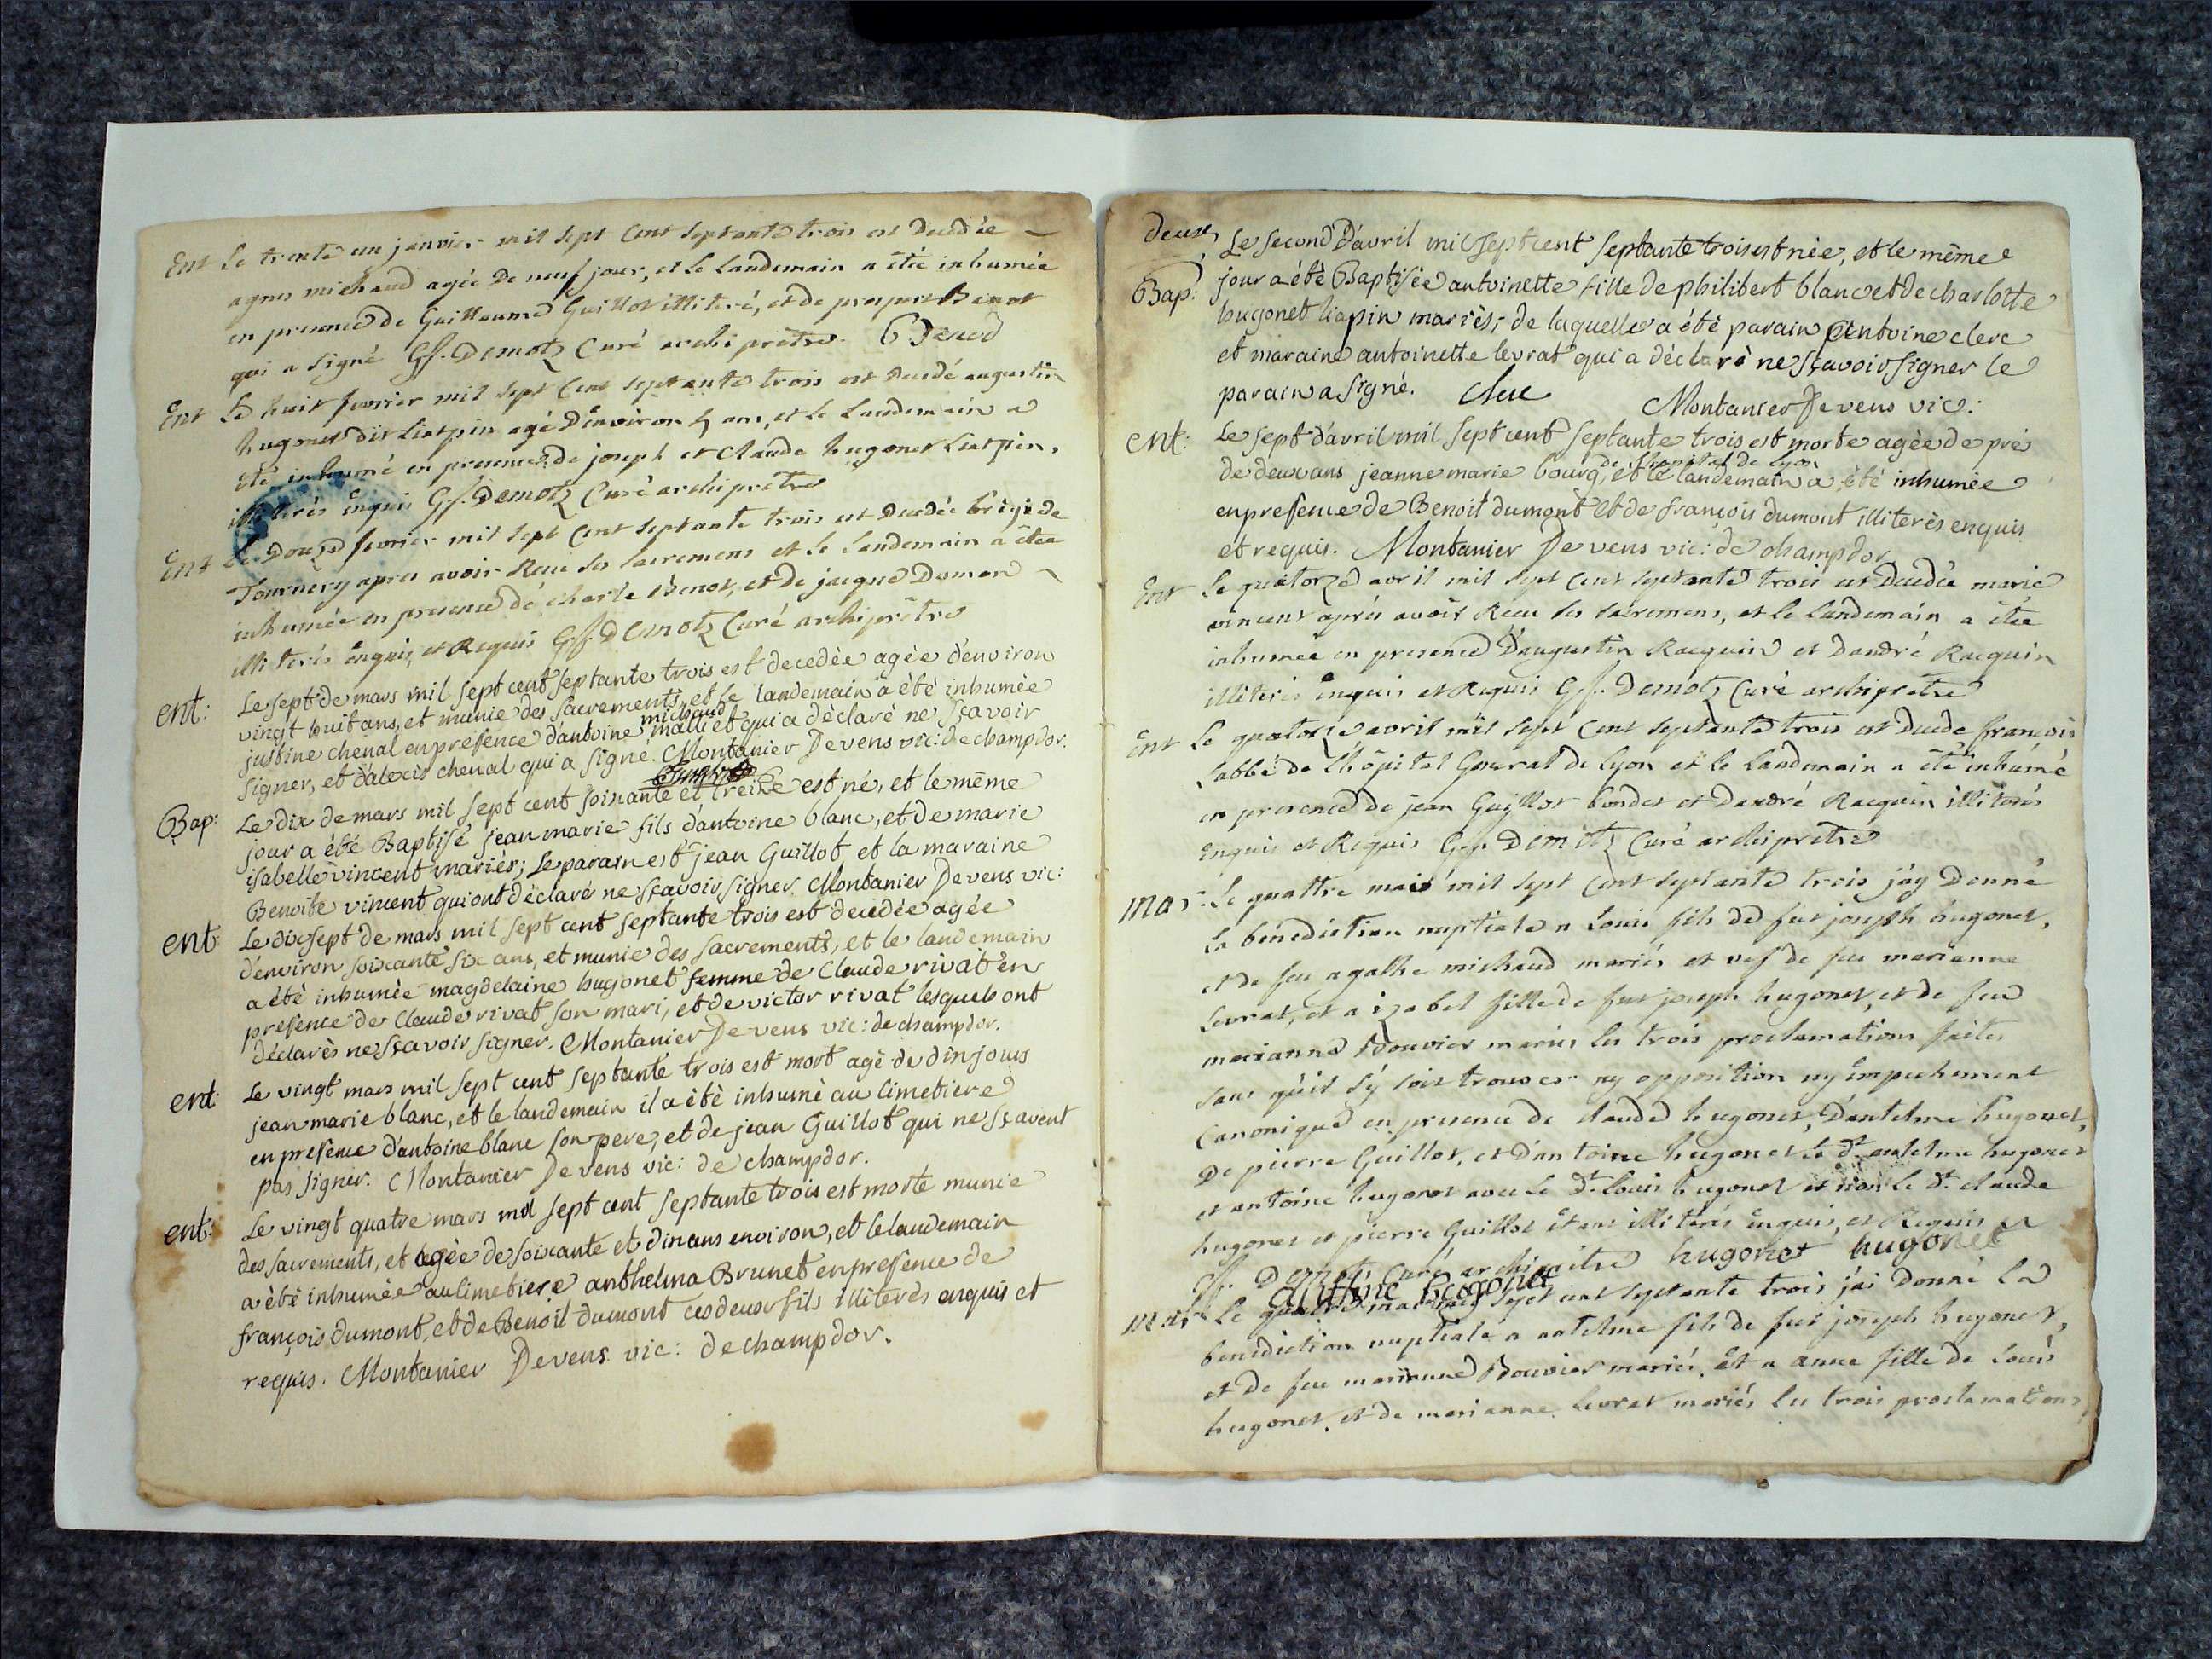 Ent Le trente un janvier mil sept Cent septante trois est decedée
agnes michaud agée De neuf jour, et le landemain a étée inhumée
en presence de Guillaume Guillot illiteré, et de prosper Benot
qui a signé Gs. Demotz Curé archiprêtre. Benod
Ent Le huit fevrier mil sept Cent septante trois est decedé augustin
hugonet dit Liatpin agé D'environ 4 ans, et le landemain a
été inhumé en presence de joseph et Claude hugonet Liatpin,
illiterés Enquis Gs. Demotz Curé archiprêtre
Ent Le Douze fevrier mil sept Cent septante trois est decedée brigide
Tournery apres avoir Receu ses sacremens et le landemain a étée
inhumée en presence de charle Benot, et de jacque Dumon
illiterés Enquis, et Requis Gs. Demotz Curé archiprêtre
ent: Le sept de mars mil sept cent septante trois est decedèe agèe d'environ
vingt huit ans, et munie des sacrements, et le landemain a étè inhumèe
justine chenal en presence d'antoine mallet michaud qui a dèclarè ne sçavoir
signer, et d'alexis chenal qui a signè. Montanier De vens vic: de champdor.
Bap: Le dix de mars mil sept cent soixante et treize est né, et le mème
jour a été Baptisé jean marie fils d'antoine blanc, et de marie
isabelle vincent mariès; Le parain est jean Guillot et la maraine
Benoite vincent qui ont dèclarè ne sçavoir signer. Montanier De vens vic:
ent: Le dix sept de mars mil sept cent septante trois est decedèe agèe
d'environ soixante six ans, et munie des sacrements, et le landemain
a étè inhumèe magdelaine hugonet femme de Claude rivat en
presence de Claude rivat son mari, et de victor rivat lesquels ont
dèclarès ne sçavoir signer. Montanier De vens vic: de champdor.
ent: Le vingt mars mil sept cent septante trois est mort agé de dix jours
jean marie blanc, et le landemain il a étè inhumè au cimetiere
en presence d'antoine blanc son pere, et de jean Guillot qui ne sçavent
pas signer. Montanier De vens vic: de champdor.
ent: Le vingt quatre mars mil sept cent septante trois est morte munie
des sacrements, et agèe de soixante et dix ans environ, et le landemain
a étè inhumèe au cimetiere anthelma Brunet en presence de
françois dumont, et de Benoit dumont ces deux fils illiterès enquis et
requis. Montanier De vens vic: de champdor.
deux,
Bap: Le second D'avril mil sept cent septante trois est nèe, et le mème
jour a étè Baptisèe antoinette fille de philibert blanc et de charlotte
hugonet liapin mariès; de laquelle a été parain Antoine clerc
et maraine antoinette levrat qui a dèclarè ne sçavoir signer le
parain a signè. Clerc Montanier De vens vic:
ent: Le sept d'avril mil sept cent septante trois est morte agèe de prés
de deux ans jeanne marie bourg, de l'hopital de lyon et le landemain a étè inhumèe
en presence de Benoit dumont et de françois dumont illiterès enquis
et requis. Montanier De vens vic: de champdor
Ent Le quatorze avril mil sept Cent septante trois est Decedée marie
vincent aprés avoir Receu ses sacremens, et le landemain a étée
inhumée en presence D'augustin Racquin et D'andré Racquin
illiterés Enquis et Requis Gs. Demotz Curé archiprêtre
Ent Le quatorze avril mil sept Cent septante trois est decedé françois
l'abbé de l'hôpital General de lyon et le landemain a été inhumé
en presence de jean Guillot bondet et D'andré Racquin illiterés
Enquis et Requis Gs. Demotz Curé archiprêtre
mar: Le quattre mais mil sept Cent septante trois j'ay Donné
la benediction nuptiale a Louis fils de feu joseph hugonet,
et de feu agathe michaud mariés et vef de feu marianne
Levrat, et a izabel fille de feu joseph hugonet, et de feu
marianne Bouvier mariés les trois proclamations faites
sans qu'il s'y soit trouver ny opposition ny Empechement
Canonique en presence de claude hugonet, D'antelme hugonet,
De pierre Guillot, et d'antoine hugonet le dt antelme hugonet
et antoine hugonet avec le dt louis hugonet et non le dt claude
hugonet et pierre Guillot Etant illiterés Enquis, et Requis
Gs. Demotz Curé archiprêtre hugonet hugonet
Antoine hugonet
mar Le quatre mai mil sept cent septante trois j'ai Donné la
benediction nuptiale a antelme fils de feu joseph hugonet,
et de feu marianne Bouvier mariés, Et a anne fille de Louis
hugonet, et de marianne Levrat mariés les trois proclamations,